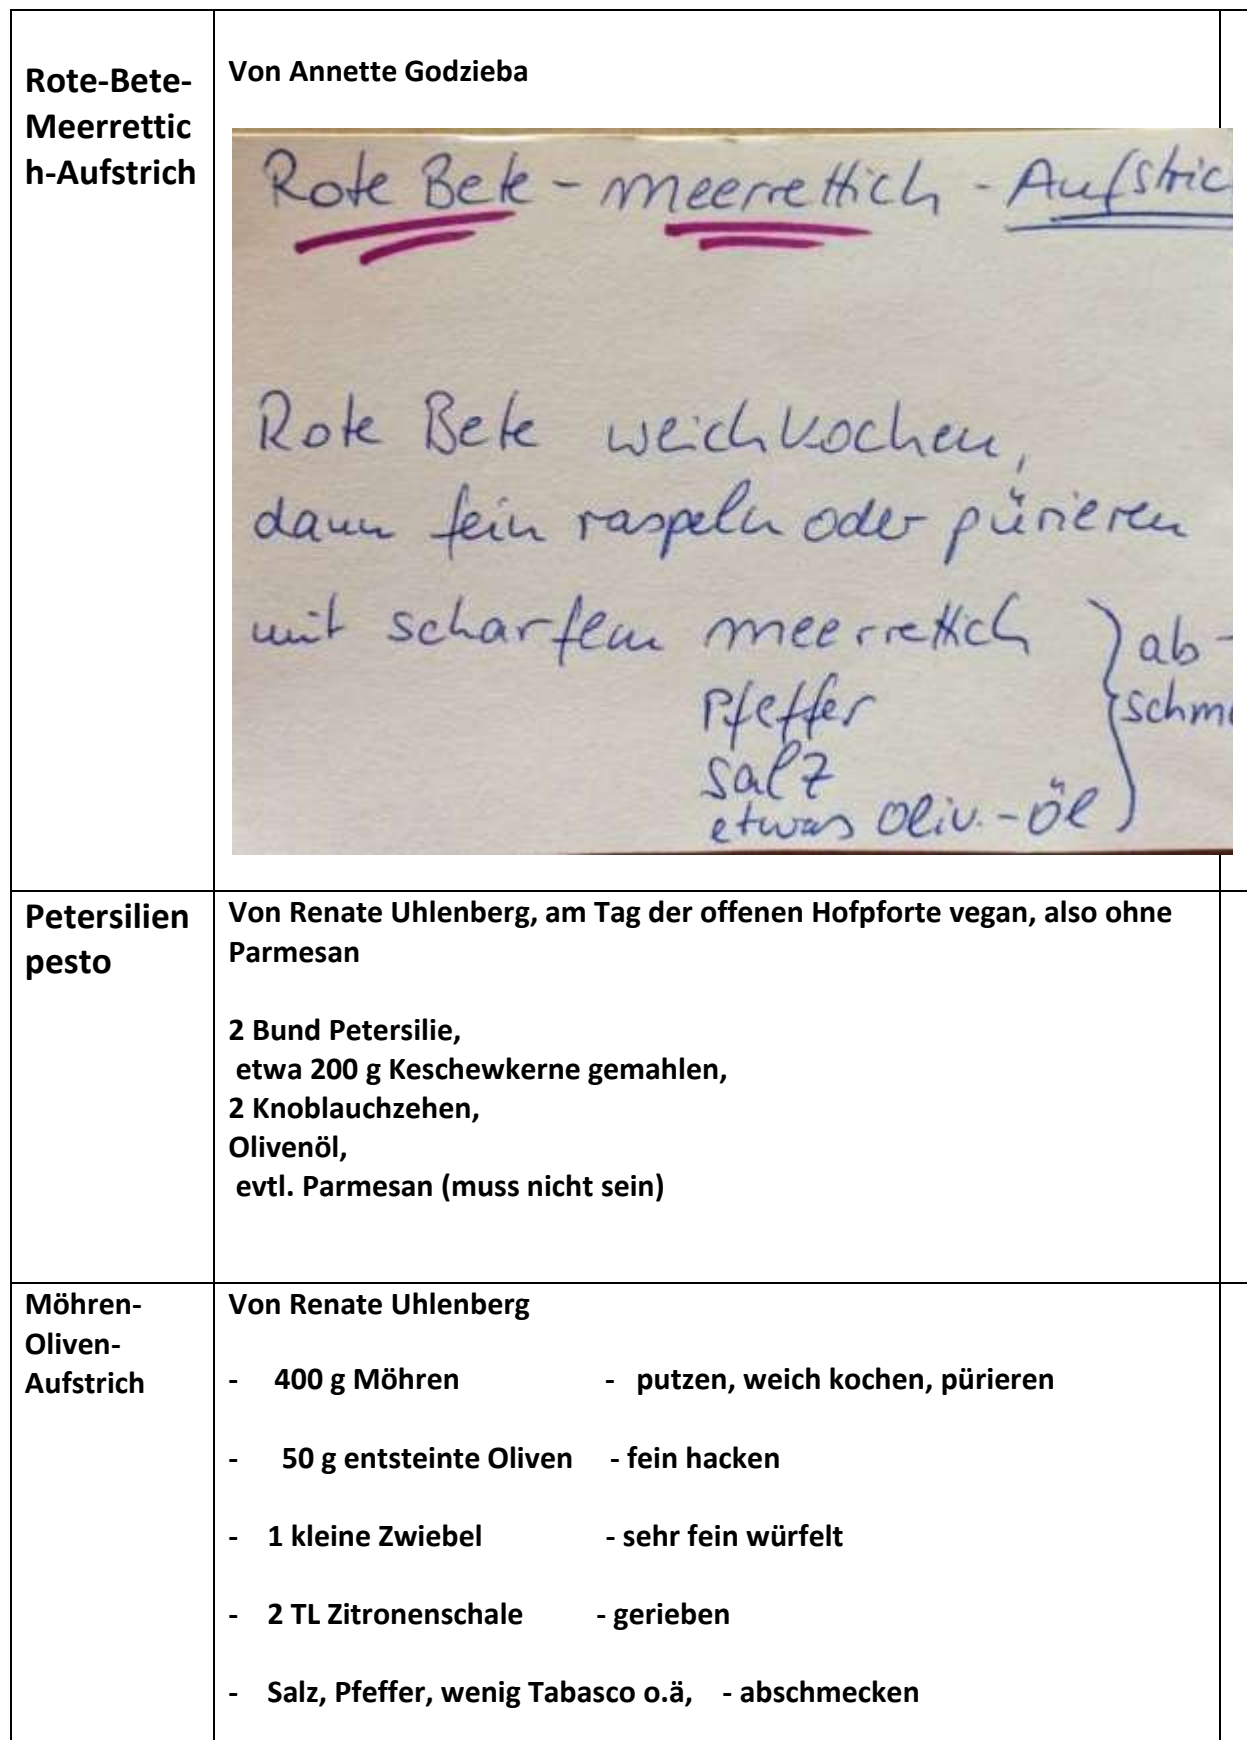 Rote-Bete-
Meerrettic
h-Aufstrich
Von Annette Godzieba
Rote Bete - Meerrettich - Aufstric
Rote Bete weichkochen,
dann fein raspeln oder pürieren
mit scharfem Meerrettich } ab-
Pfeffer schme
Salz
etwas Oliv.-Öl
Petersilien
pesto
Von Renate Uhlenberg, am Tag der offenen Hofpforte vegan, also ohne
Parmesan
2 Bund Petersilie,
etwa 200 g Keschewkerne gemahlen,
2 Knoblauchzehen,
Olivenöl,
evtl. Parmesan (muss nicht sein)
Möhren-
Oliven-
Aufstrich
Von Renate Uhlenberg
- 400 g Möhren - putzen, weich kochen, pürieren
- 50 g entsteinte Oliven - fein hacken
- 1 kleine Zwiebel - sehr fein würfelt
- 2 TL Zitronenschale - gerieben
- Salz, Pfeffer, wenig Tabasco o.ä, - abschmecken